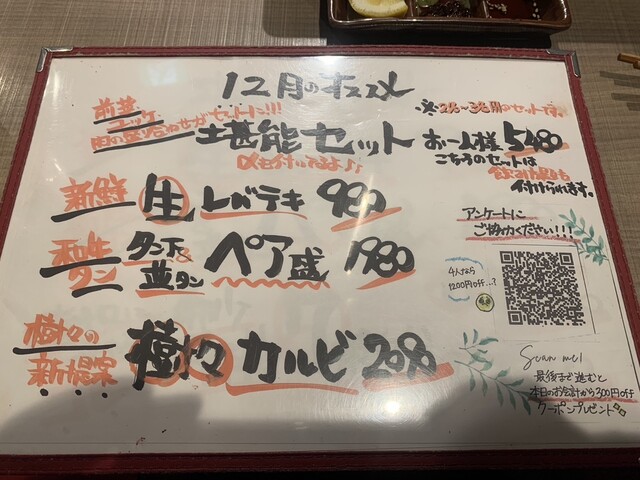 12月のオススメ
前菜
ユッケ
肉の盛り合わせがセットに!!!
堪能セット
〆も付いてるよ♪
※2名〜3名用のセットです。
お一人様 5480
こちらのセットは
飲み放題も
付けられます。
新鮮 生 レバテキ 980
和牛タン
タン下&
並タン
ペア盛 1980
樹々の
新提案
樹々カルビ 2080
アンケートに
ご協力ください!!!
4人なら
1200円off...?
Scan me!
最後まで進むと
本日のお会計から300円off
クーポンプレゼント